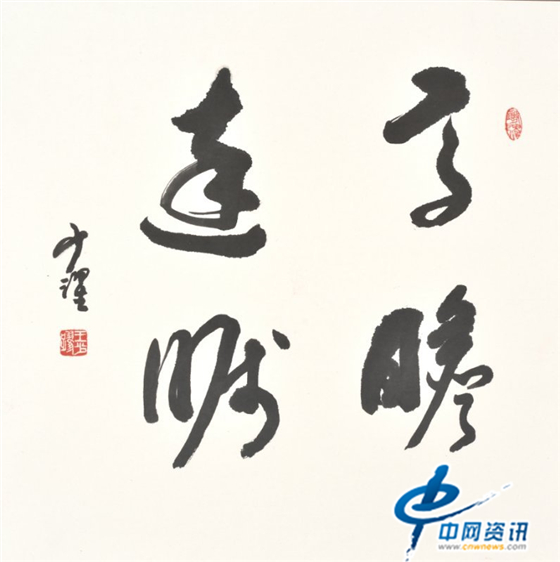 高瞻
远瞩
少躍
中网资讯
www.cnwnews.com